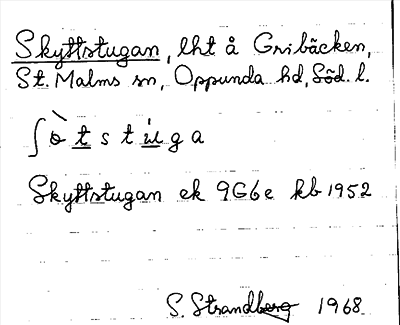 Skyttstugan, lht å Gribäcken,
St. Malms sn, Oppunda hd, Söd. l.
ʃò̀tstu̇ga
Skyttstugan ek 9G6e kb 1952
S. Strandberg 1968